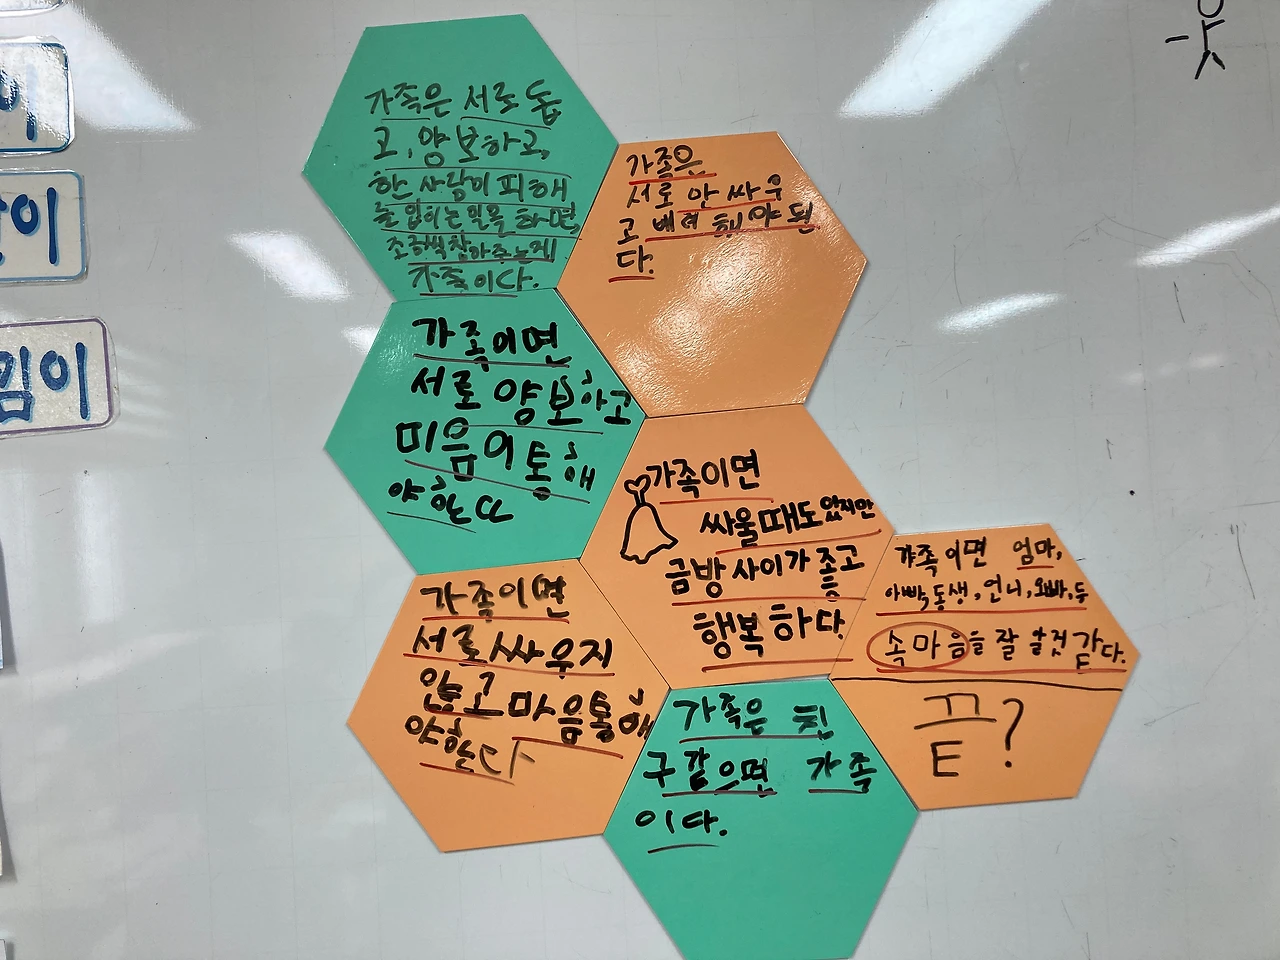 가족은 서로 돕
고, 양보하고,
한 사람이 피해
를 입히는 일을 하면,
조금씩 참아주는게
가족이다.
가족은
서로 안 싸우
고 배려 해야 된
다.
가족이면
서로 양보하고
마음이 통해
야한다
가족이면
싸울때도 있지만
금방 사이가 좋고
행복하다
가족이면 엄마,
아빠, 동생, 언니, 오빠,
속마음을 잘 알것 같다.
끝?
가족이면
서로 싸우지
않고 마음통해
야한다
가족은 친
구같으면 가족
이다.
이
이
임이